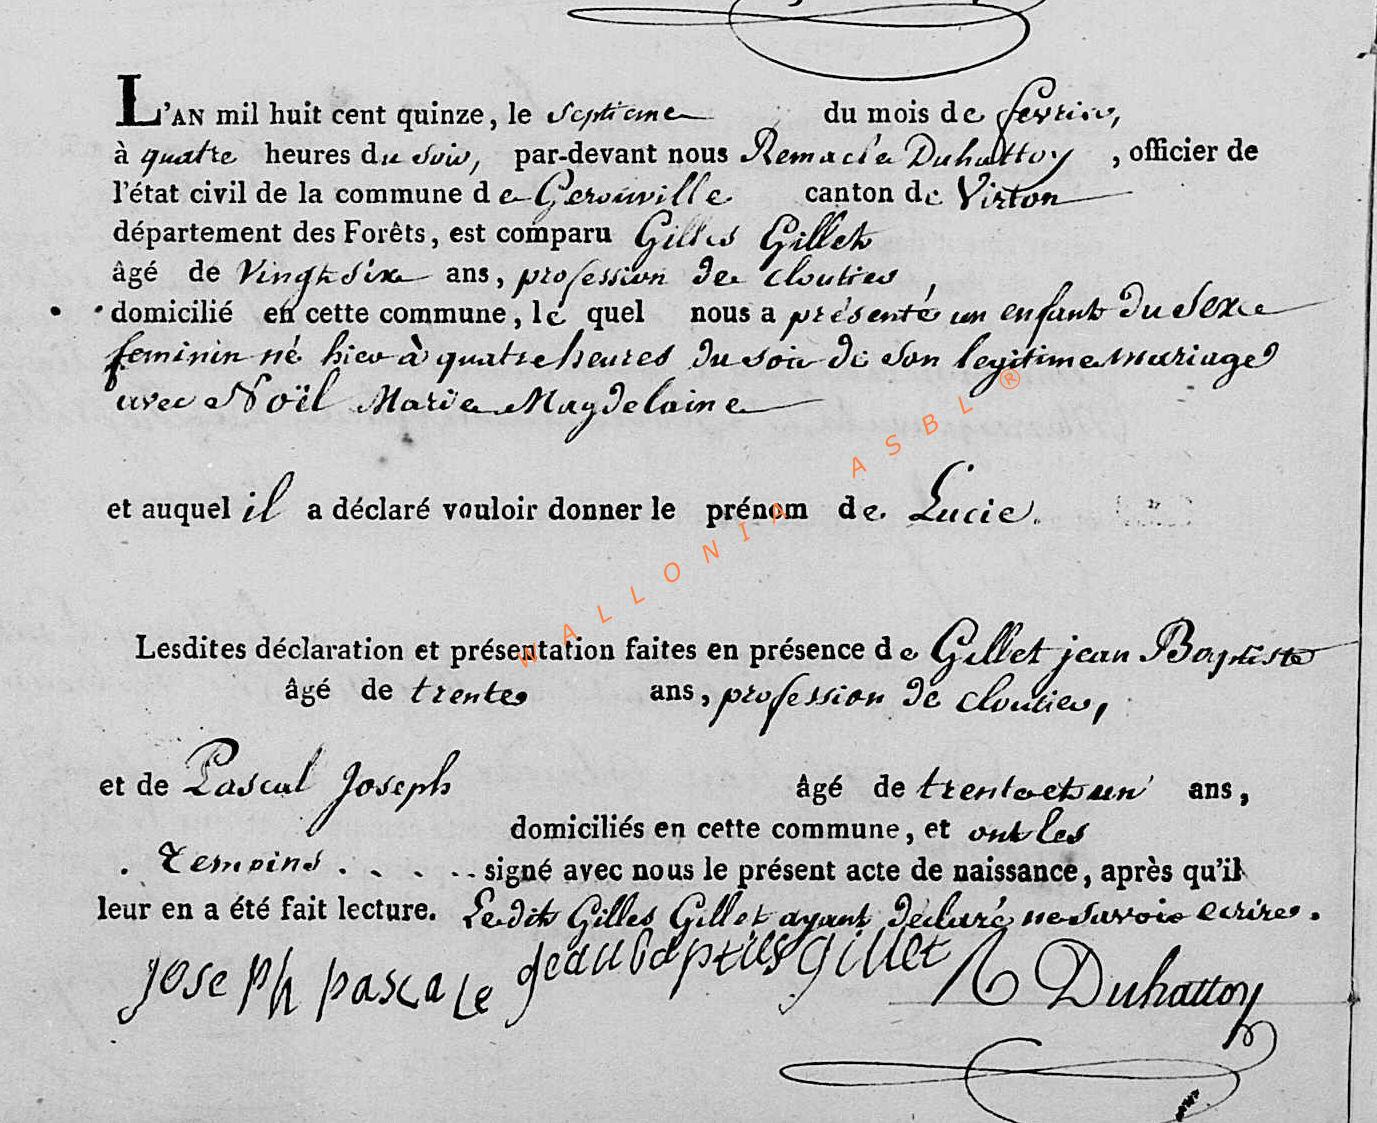 L'AN mil huit cent quinze, le septieme du mois de fevrier,
à quatre heures du soir, par-devant nous Remacle Duhattoy, officier de
l'état civil de la commune de Gerouville canton de Virton
département des Forêts, est comparu Gilles Gillet
âgé de vingt six ans, profession de cloutier,
domicilié en cette commune, le quel nous a présenté un enfant du Sexe
feminin né hier à quatre heures du soir de son legitime mariage
avec Noël Marie Magdelaine
et auquel il a déclaré vouloir donner le prénom de Lucie.
WALLONIA ASBL®
Lesdites déclaration et présentation faites en présence de Gillet jean Baptiste
âgé de trente ans, profession de cloutier,
et de Pascal Joseph âgé de trente et un ans,
domiciliés en cette commune, et ont les
. temoins . . . . . signé avec nous le présent acte de naissance, après qu'il
leur en a été fait lecture. Ledit Gilles Gillet ayant declaré ne savoir ecrire.
joseph pascale jean bapties gillet R Duhattoy